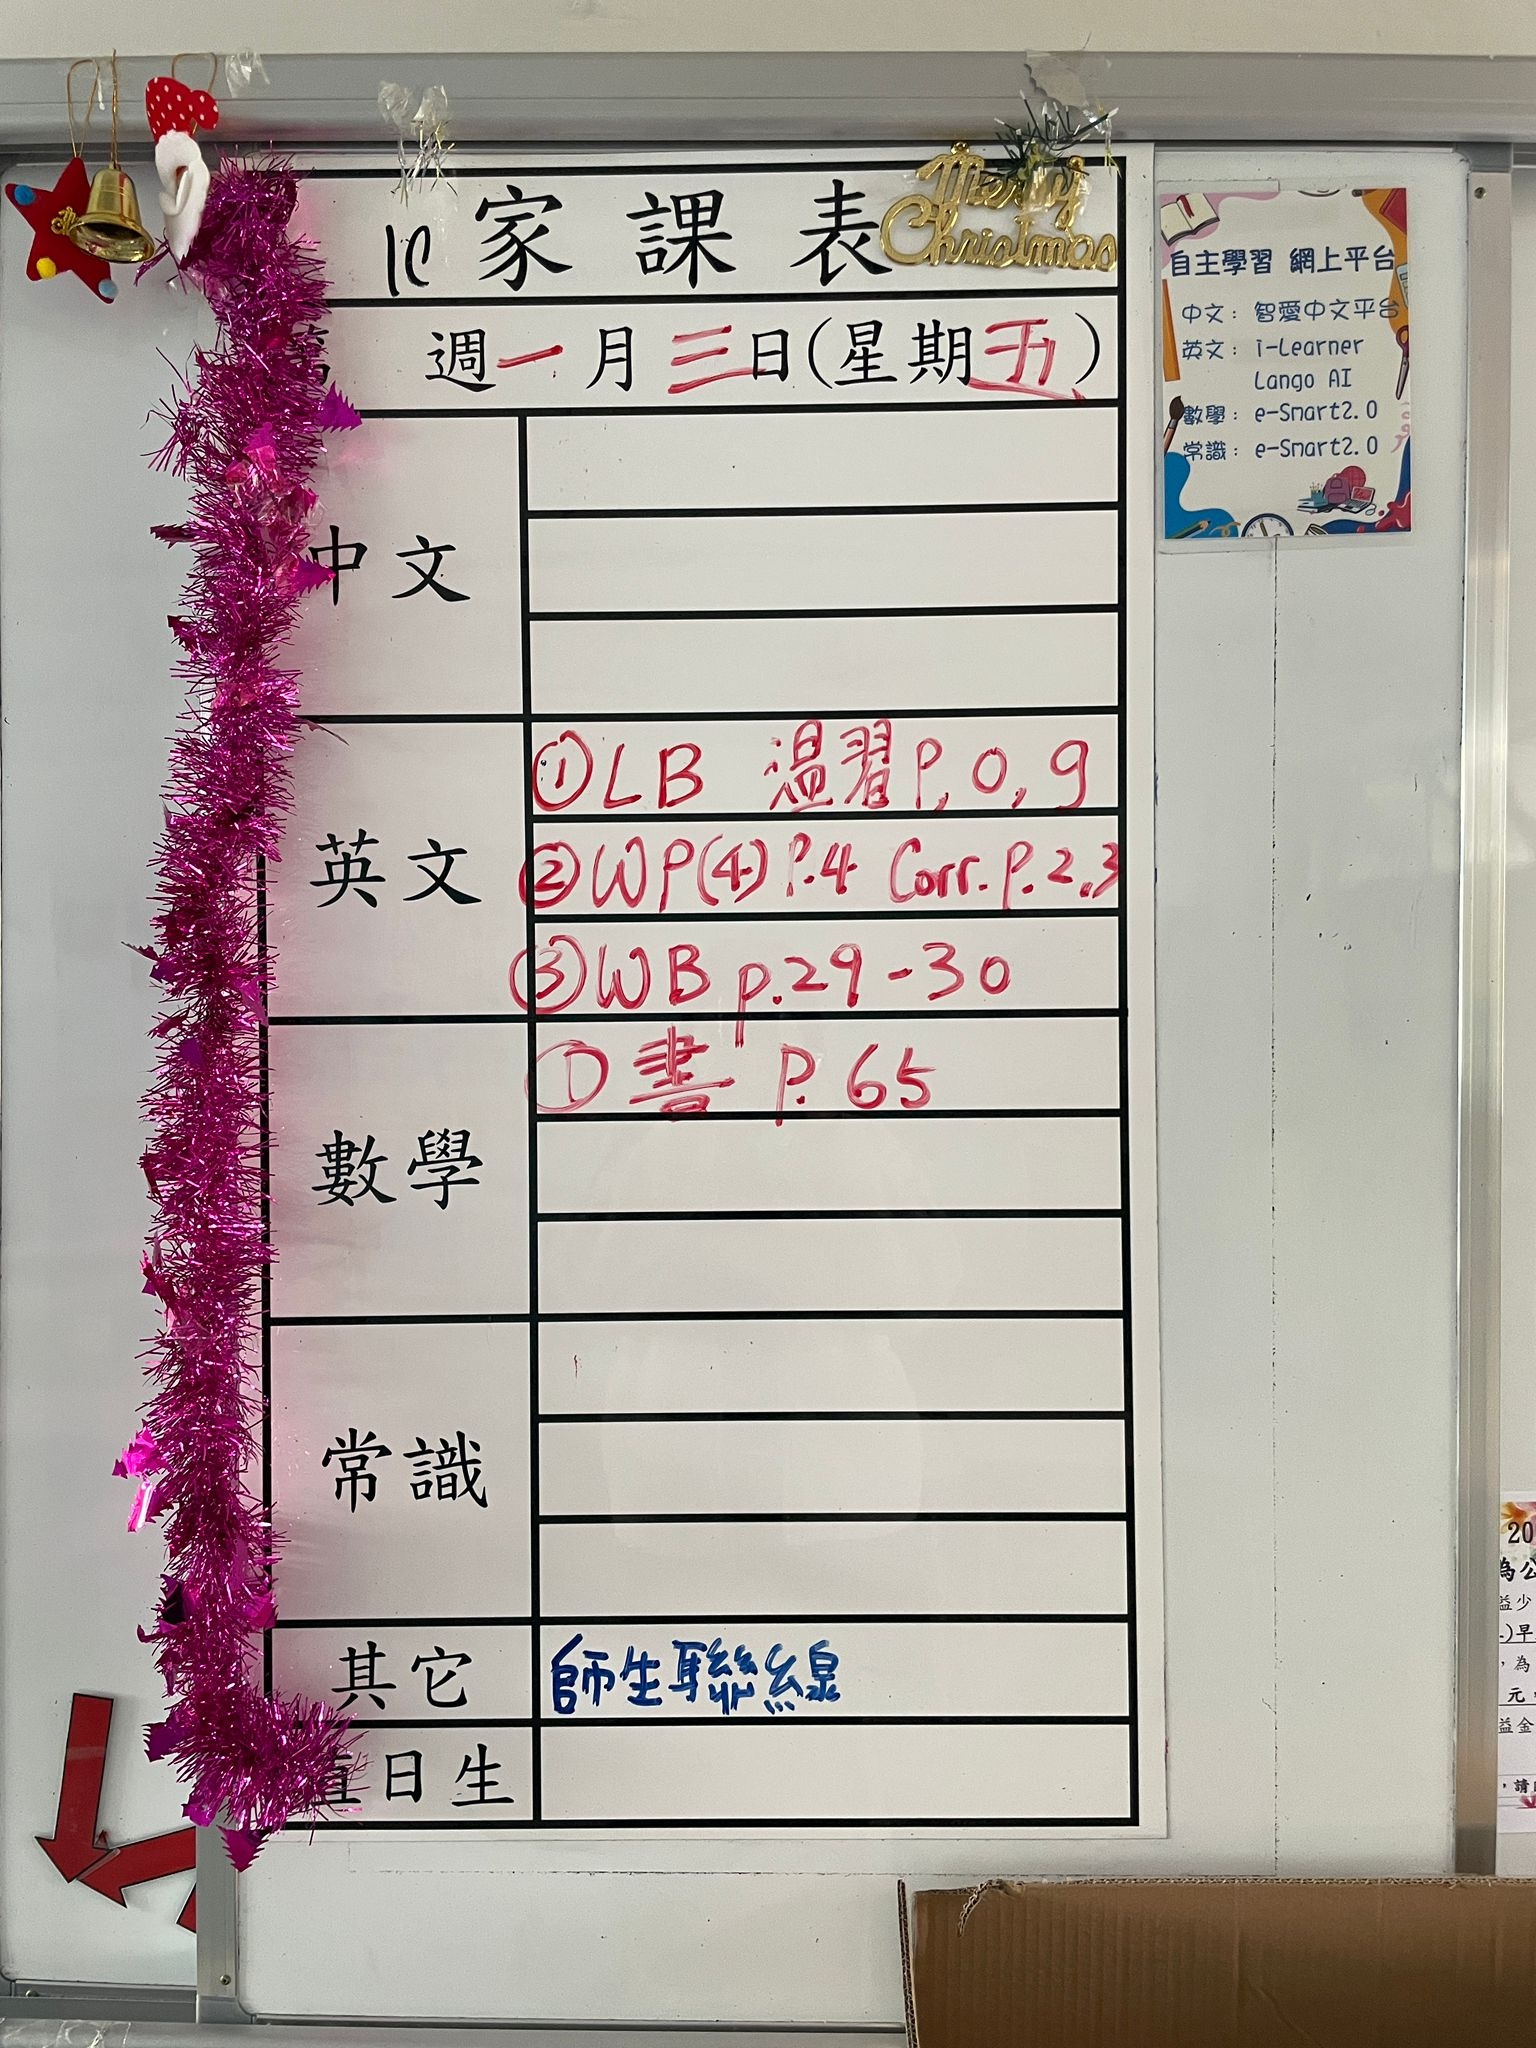 1C 家課表
Merry
Christmas
第 週 一月三日(星期五)
中文
英文
①LB 温習P,0,9
②WP(4)P.4 Corr.P.2,3
③WB p.29-30
數學
①書 P.65
常識
其它
師生聯線
值日生
自主學習 網上平台
中文: 智愛中文平台
英文: i-Learner
Lango AI
數學: e-Smart2.0
常識: e-Smart2.0
20
為公
益少
.)早
,為
元
益金
,請